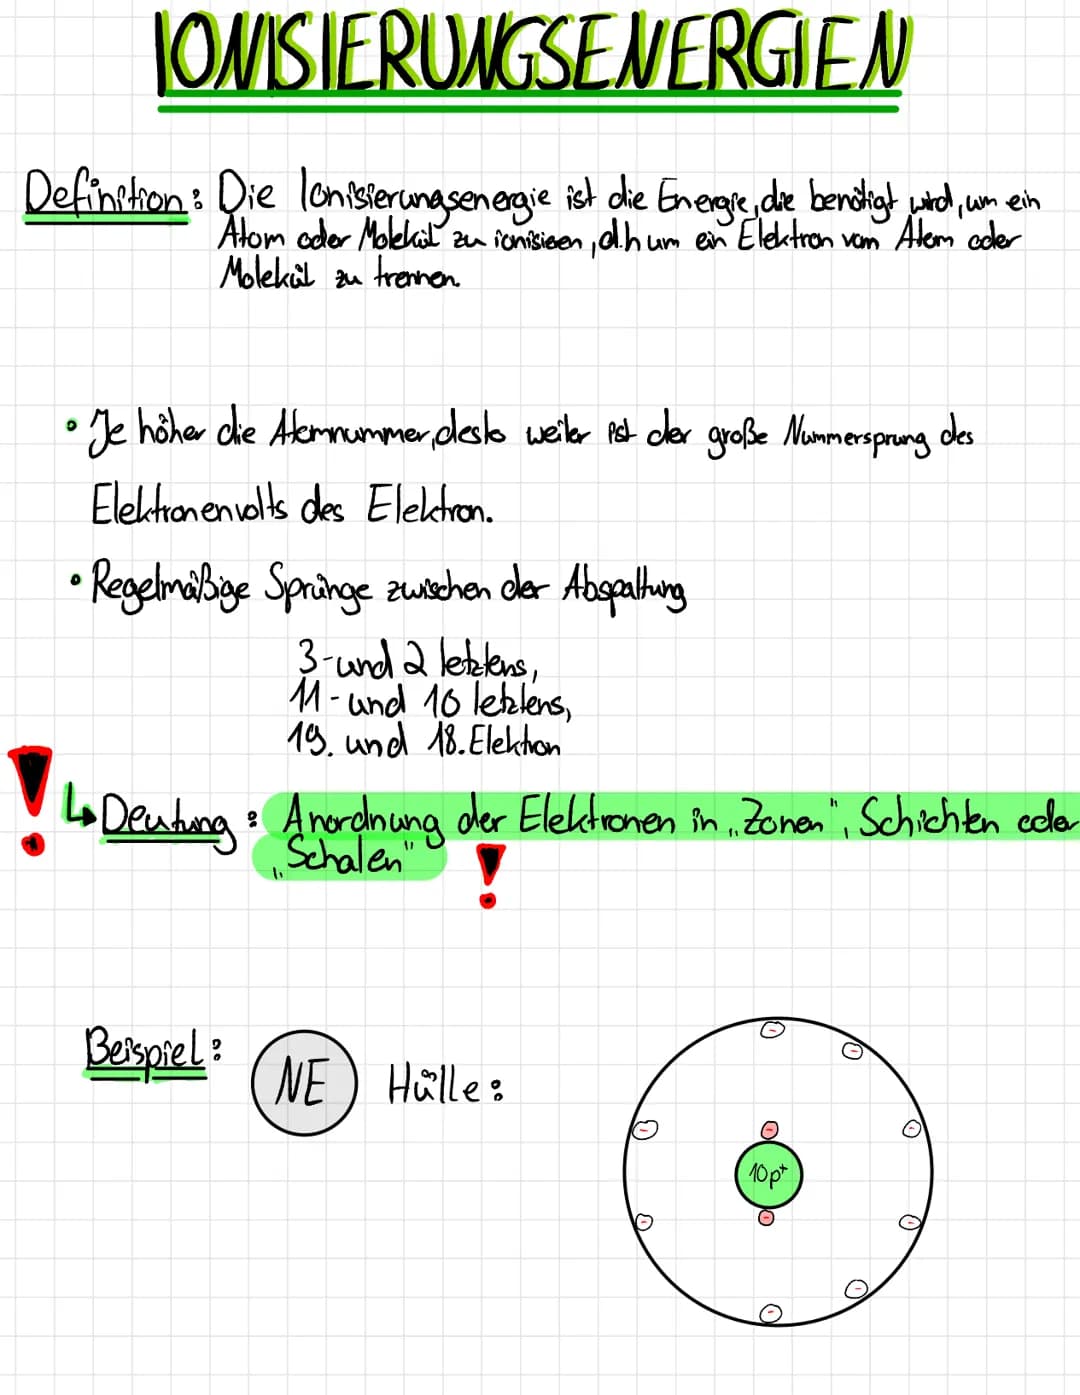 IONISIERUNGSENERGIEN
Definition: Die Ionisierungsenergie ist die Energie, die benötigt wird, um ein
Atom oder Molekül zu ionisieen, d.h um ein Elektron vom Atom oder
Molekül zu trennen.
• Je höher die Atomnummer, desto weiter ist der große Nummersprung des
Elektronenvolts des Elektron.
• Regelmäßige Sprünge zwischen der Abspaltung
3-und 2 letztens,
11-und 10 letztens,
19. und 18. Elektron
! ↳ Deutung: Anordnung der Elektronen in „Zonen", Schichten oder
„Schalen" !
Beispiel: NE Hülle:
10p⁺